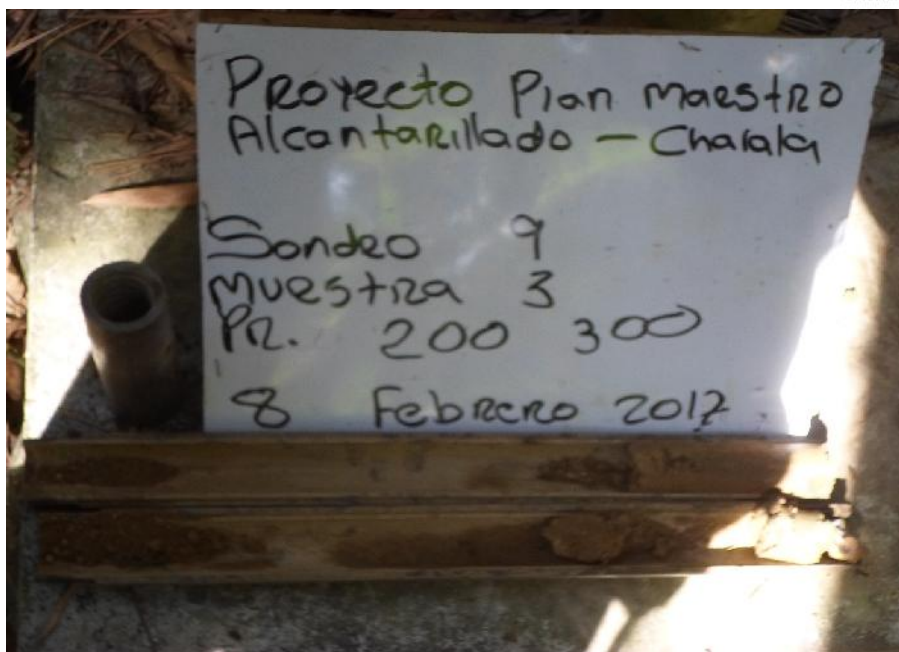 Proyecto Plan maestro
Alcantarillado - Charala
Sondeo 9
muestra 3
PR. 200 300
8 Febrero 2017